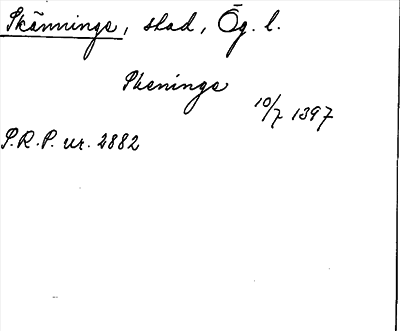 Skänninge, stad, Ög. l.
Skeninge
10/7 1397
S.R.P. nr. 2882